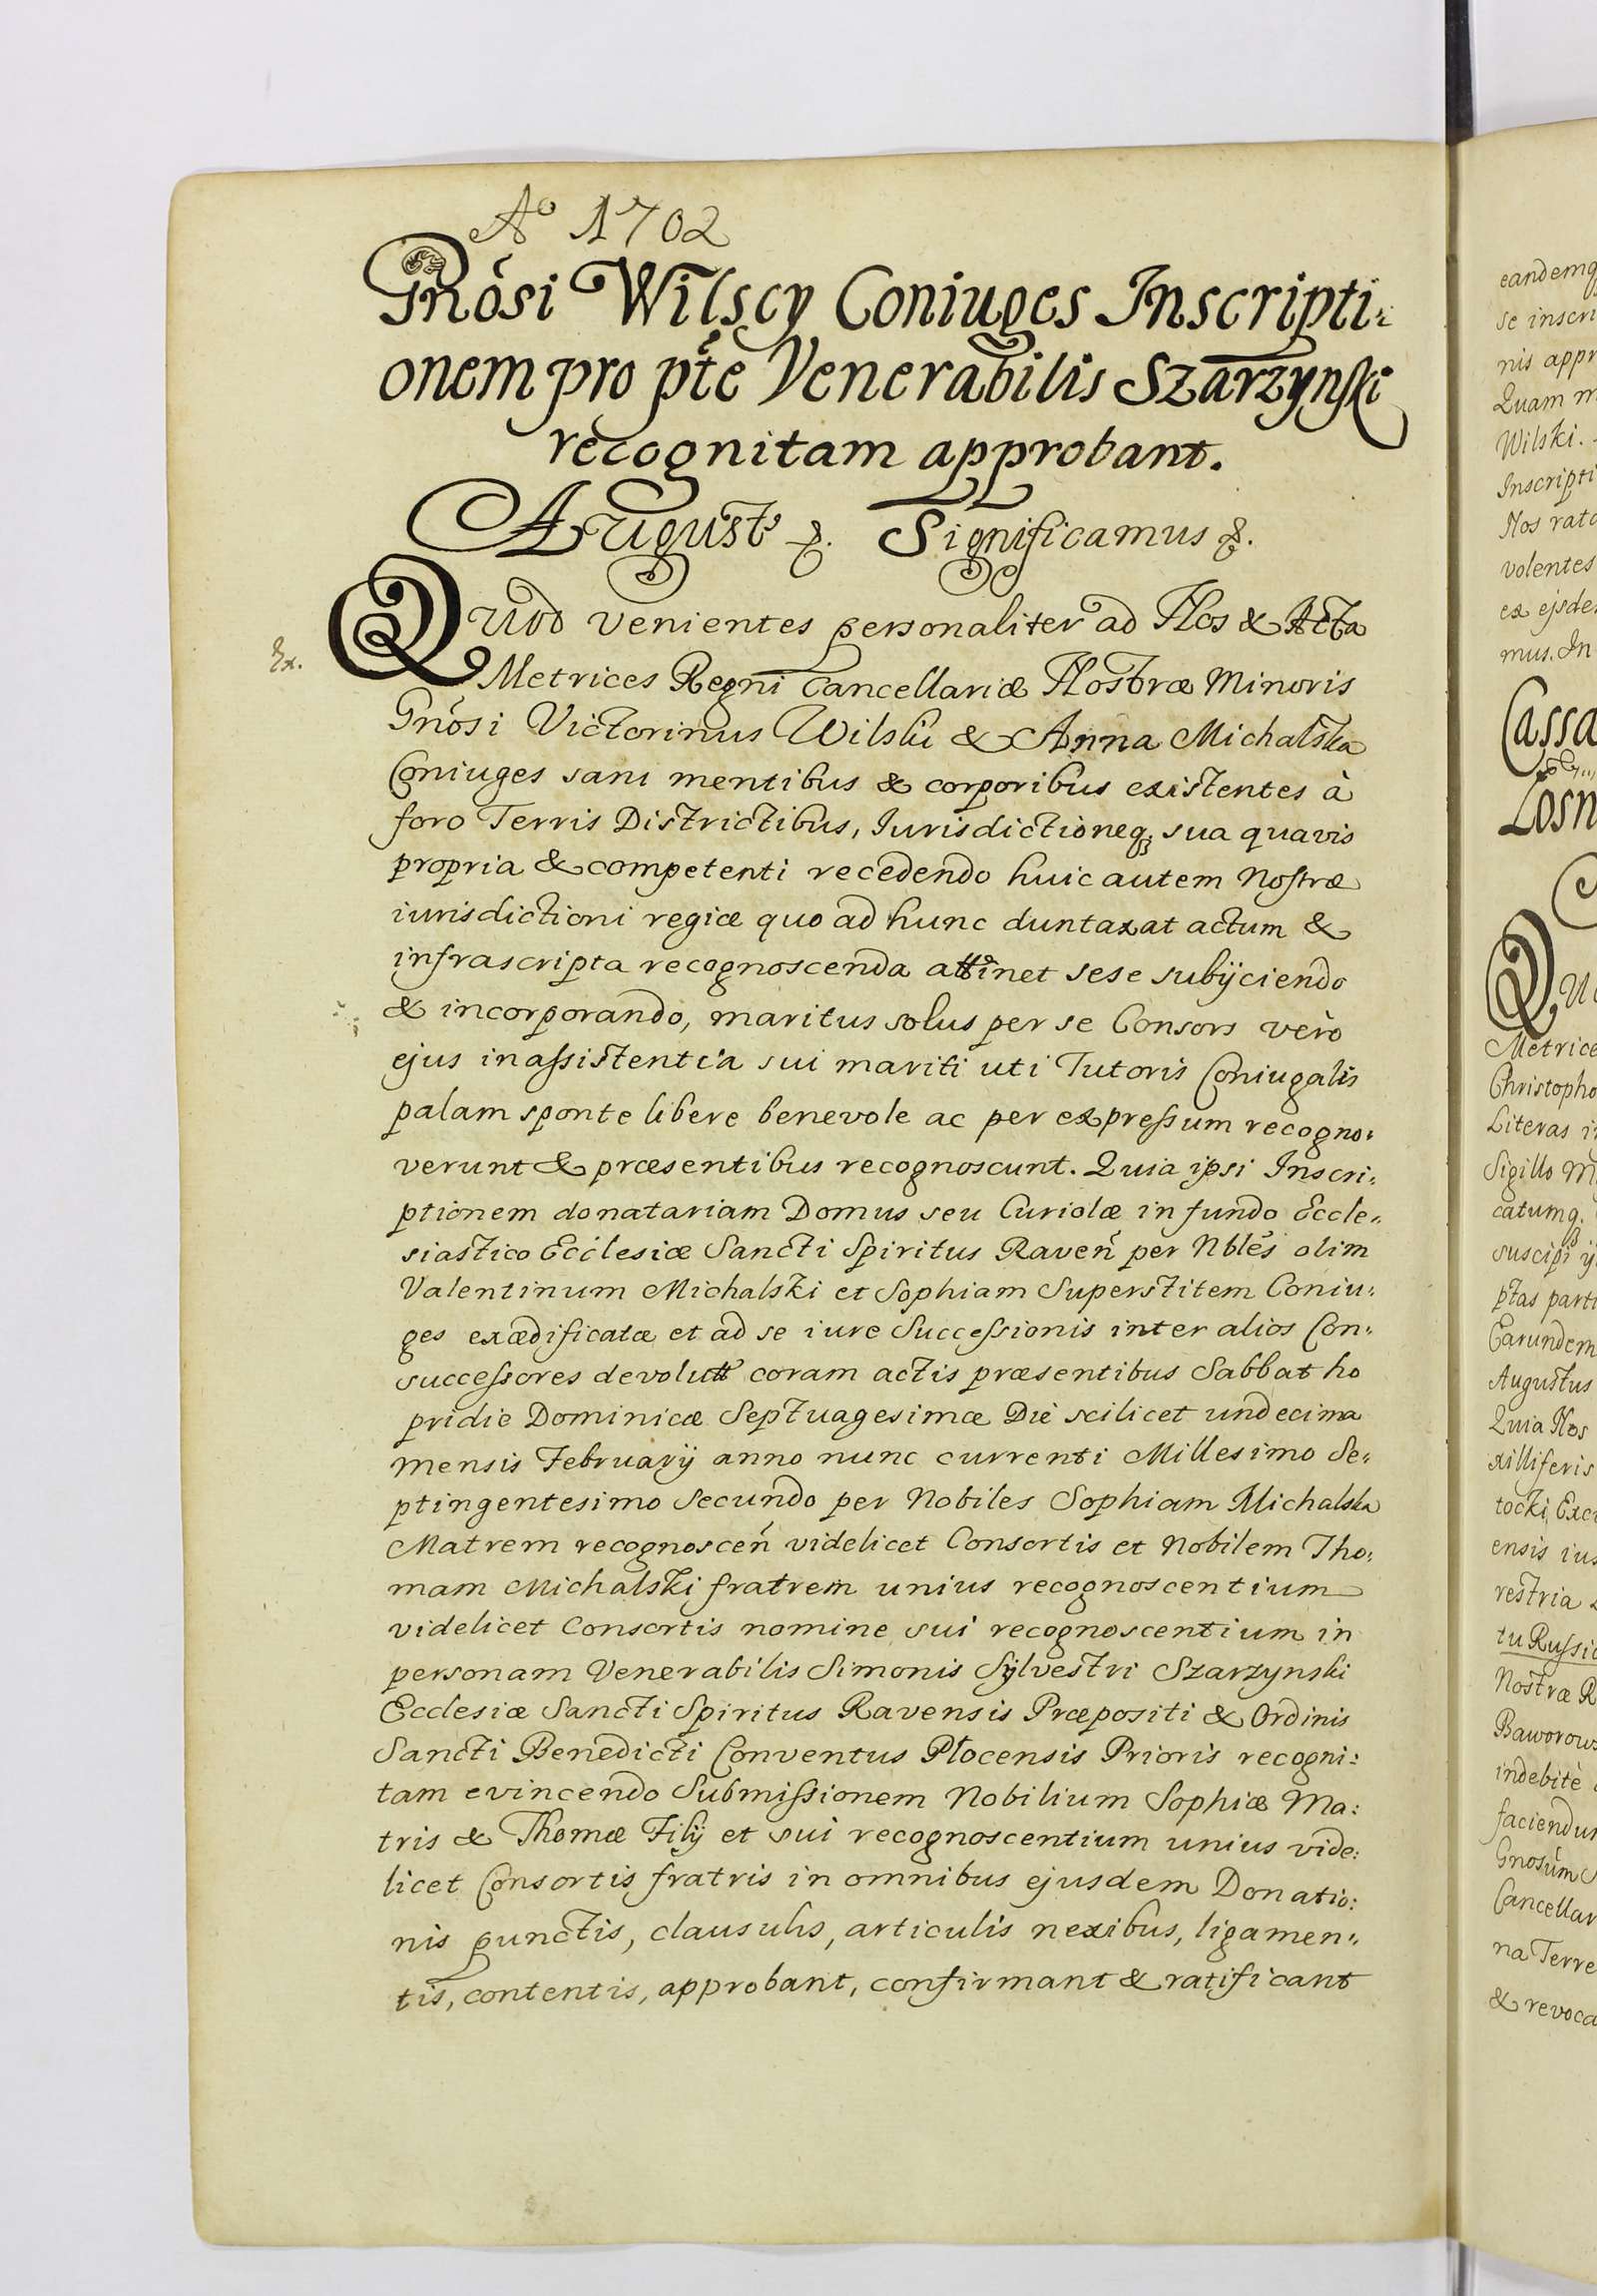 Aº 1702
Gnosi Wilscy Coniuges Inscripti:
onem pro pte Venerabilis Szarzynski
recognitam approbant.
August9 &. Significamus &.
Quod venientes personaliter ad Nos & Acta
Ex.
Metrices Regni Cancellariæ Nostræ Minoris
Gnosi Victorinus Wilski & Anna Michalska
Coniuges sani mentibus & corporibus existentes à
foro Terris Districtibus, Iurisdictioneq; sua quavis
propria & competenti recedendo huic autem Nostræ
iurisdictioni regiæ quo ad hunc duntaxat actum &
infrascripta recognoscenda attinet sese subijciendo
& incorporando, maritus solus per se Consors verò
ejus in assistentia sui mariti uti Tutoris Coniugalis
palam sponte libere benevole ac per expressum recogno:
verunt & præsentibus recognoscunt. Quia ipsi Inscri:
ptionem donatariam Domus seu Curiolæ in fundo Eccle:
siastico Ecclesiæ Sancti Spiritus Raven̄ per Nbles olim
Valentinum Michalski et Sophiam Superstitem Coniu:
ges exædificatæ et ad se iure Successionis inter alios Con:
successores devolutæ coram actis præsentibus Sabbatho
pridie Dominicæ Septuagesimæ Die scilicet undecima
mensis Februarij anno nunc currenti Millesimo Se:
ptingentesimo Secundo per Nobiles Sophiam Michalska
Matrem recognoscen̄ videlicet Consortis et Nobilem Tho:
mam Michalski fratrem unius recognoscentium
videlicet Consortis nomine sui recognoscentium in
personam Venerabilis Simonis Sylvestri Szarzynski
Ecclesiæ Sancti Spiritus Ravensis Præpositi & Ordinis
Sancti Benedicti Conventus Plocensis Prioris recogni:
tam evincendo Submissionem Nobilium Sophiæ Ma:
tris & Thomæ Filij et sui recognoscentium unius vide:
licet Consortis fratris in omnibus ejusdem Donatio:
nis punctis, clausulis, articulis nexibus, ligamen:
tis, contentis, approbant, confirmant & ratificant
eandemq
se inscri
nis appr
Quam m
Wilski.
Inscripti
Nos rat
volentes
ex ejsde
mus. In
Cassa
Losn
Qu
Metrice
Christopho
Literas i
Sigillo M
catumq.
suscipi ij
ptas parti
Earundem
Augustus
Quia Nos
xilliferis
tocki, Exc
ensis ius
restria
tu Russi
Nostræ R
Baworows
indebitè
faciendu
Gnosum
Cancellar
na Terre
& revoca